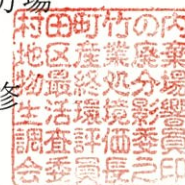 修
村田町竹の内
地区産業廃棄
物最終処分場
生活環境影響
調査評価委員
会委員長之印